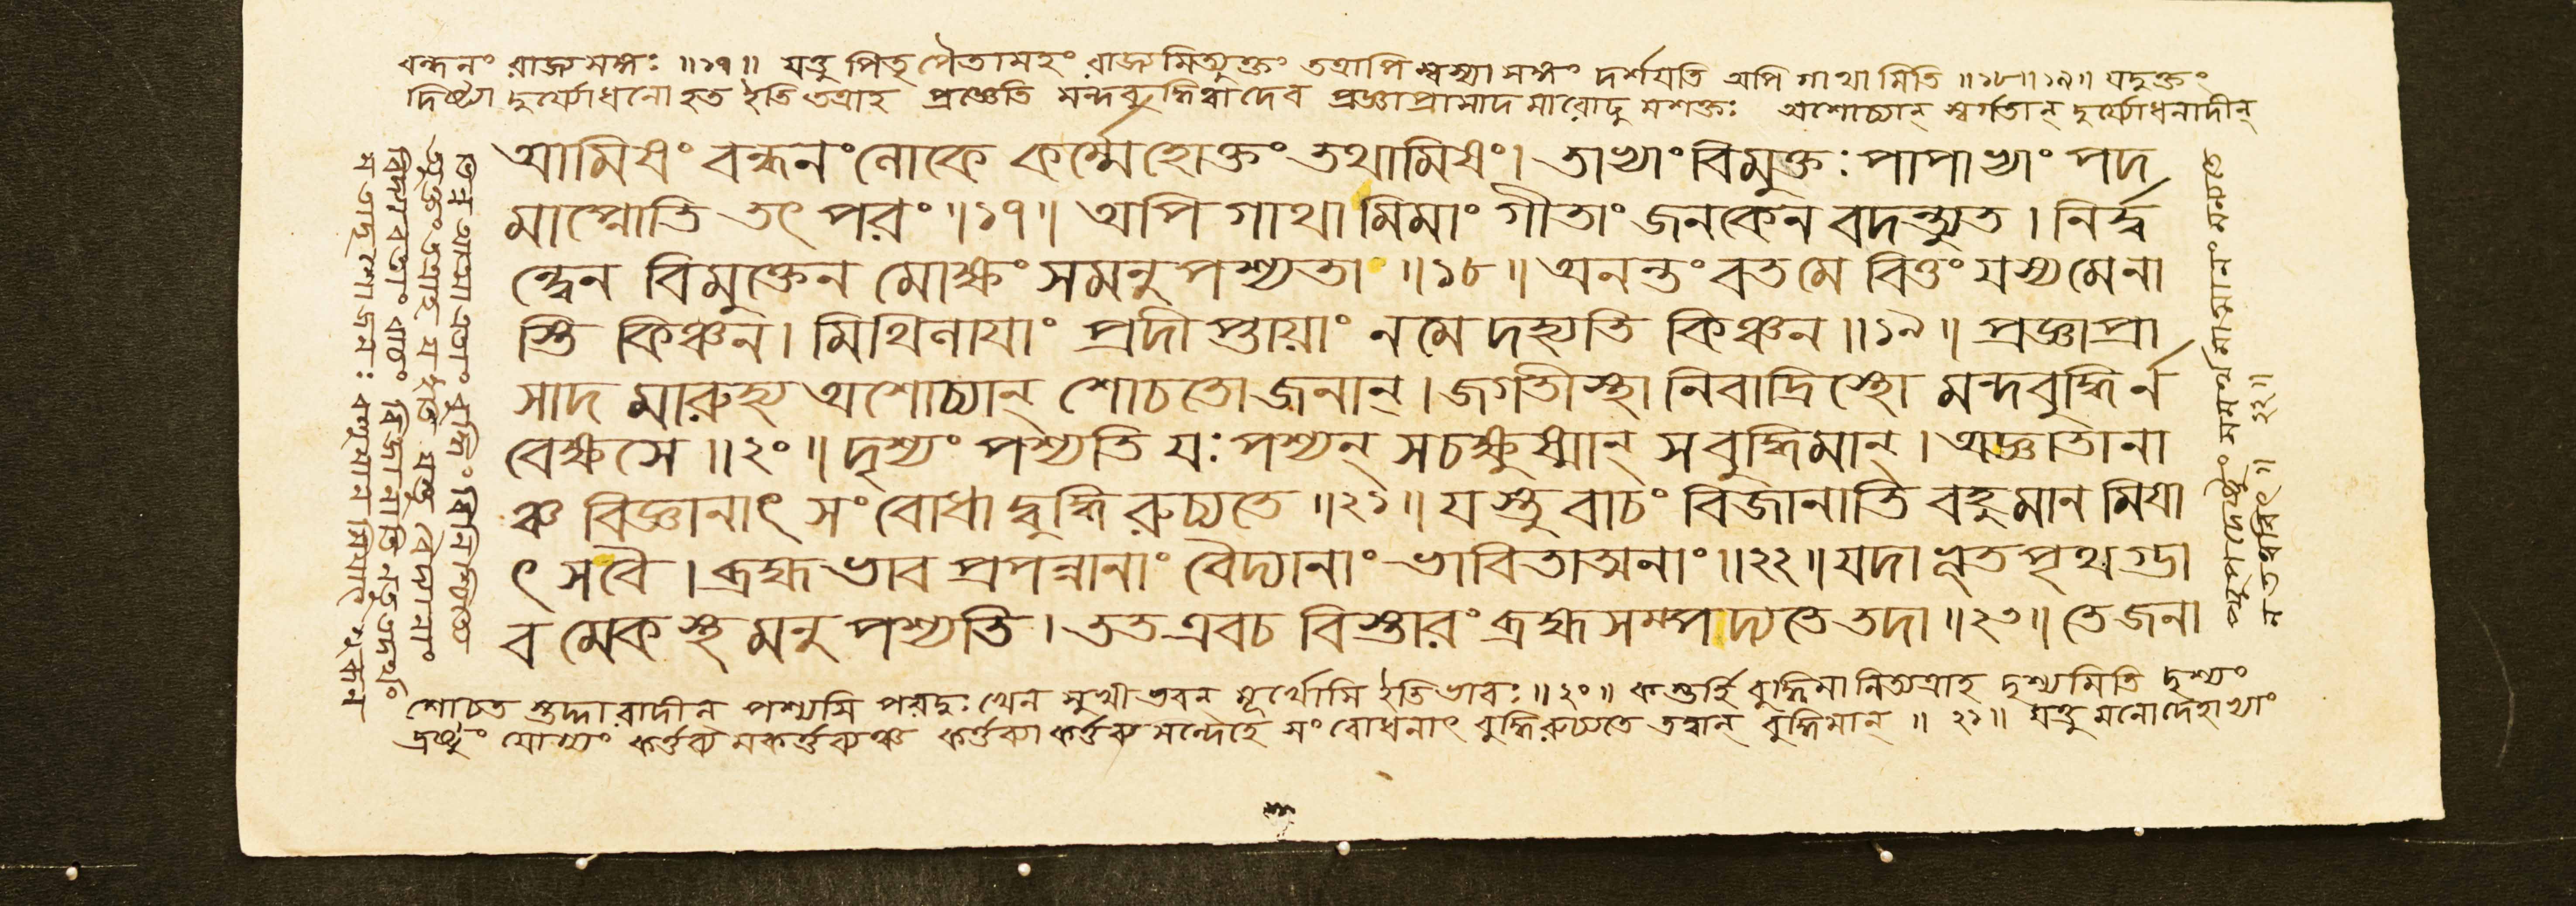 বন্ধনং রাজ্যমঙ্গঃ ॥১৭॥ যত্তু পিতৃপৈতামহং রাজ্যমিত্যুক্তং তত্রাপি দর্শয়তি অপি গাথামিতি ॥১৮॥১৯॥ যদুক্তং
দিষ্ট্যা দুর্য্যোধনো হত ইতি তত্রাহ প্রজ্ঞেতি মন্দবুদ্ধিত্বাদেব প্রজ্ঞাপ্রাসাদমারোঢুমশক্তঃ অশোচ্যান্ স্বর্গতান্ দুর্য্যোধনাদীন্
আমিষং বন্ধনং লোকে কর্ম্মেহোক্তং তথামিষং। তাভ্যাং বিমুক্তঃ পাপাভ্যাং পদ
মাপ্নোতি তৎ পরং ॥১৭॥ অপি গাথামিমাং গীতাং জনকেন বদন্ত্যুত। নির্দ্ব
ন্দ্বেন বিমুক্তেন মোক্ষং সমনুপশ্যতা ॥১৮॥ অনন্তং বত মে বিত্তং যস্য মে না
স্তি কিঞ্চন। মিথিলায়াং প্রদীপ্তায়াং ন মে দহ্যতি কিঞ্চন ॥১৯॥ প্রজ্ঞাপ্রা
সাদ মারুহ্য অশোচ্যান্ শোচতো জনান্। জগতীস্থা নিবাদ্রিস্থো মন্দবুদ্ধির্ন
বেক্ষসে ॥২০॥ দৃশ্যং পশ্যতি যঃ পশ্যন্ স চক্ষুষ্মান্ স বুদ্ধিমান্। অজ্ঞাতানা
ঞ্চ বিজ্ঞানাৎ সংবোধাদ্বুদ্ধি রুচ্যতে ॥২১॥ যস্তু বাচং বিজানাতি বহুমান মিয়া
ৎ স বৈ। ব্রহ্মভাব প্রপন্নানাং বৈদ্যানাং ভাবিতাত্মনাং ॥২২॥ যদা ভূত পৃথগ্ভা
ব মেকস্থ মনুপশ্যতি। তত এব চ বিস্তারং ব্রহ্ম সম্পদ্যতে তদা ॥২৩॥ তে জনা
শোচত পুত্রদারাদীন্ পশ্যসি পরদুঃখেন সুখী ভবন্ মূর্খোসি ইতি ভাবঃ ॥২০॥ কস্তর্হি বুদ্ধিমানিত্যত্রাহ দৃশ্যমিতি দৃশ্যং
দ্রষ্টুং যোগ্যং কর্ত্তব্য মকর্ত্তব্যঞ্চ কর্ত্তব্যাকর্ত্তব্য সন্দেহে সংবোধনাৎ বুদ্ধিরুচ্যতে তদ্বান্ বুদ্ধিমান্ ॥ ২১॥ যত্তু মনোদেহাভ্যাং